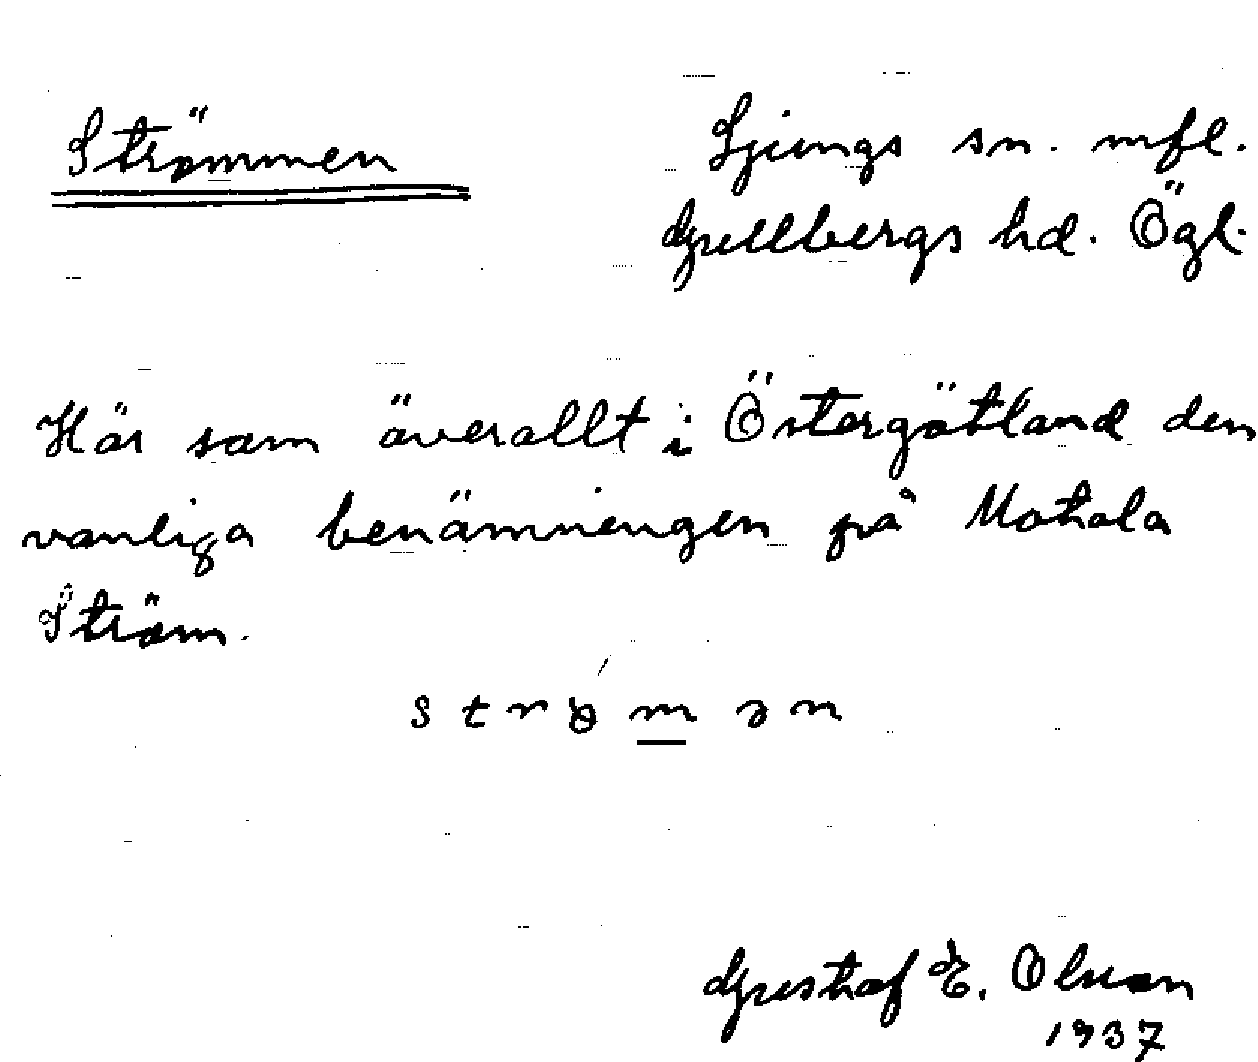 Strömmen
Ljungs sn. mfl.
Gullbergs hd. Ögl.
Här som överallt i Östergötland den
vanliga benämningen på Motala
Ström.
Gustaf E. Olson
1937